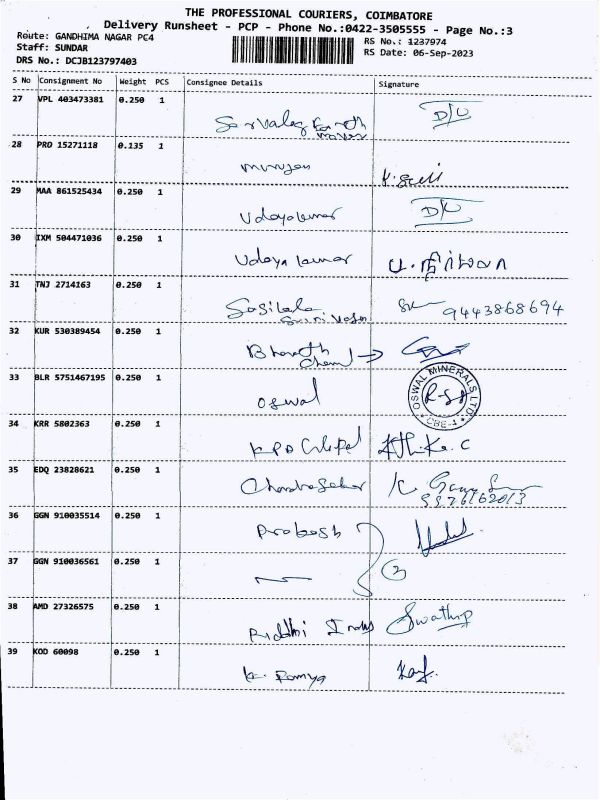 THE PROFESSIONAL COURIERS, COIMBATORE
Delivery Runsheet - PCP - Phone No.:0422-3505555 - Page No.:3
Route: GANDHIMA NAGAR PC4
RS No.: 1237974
Staff: SUNDAR
RS Date: 06-Sep-2023
DRS No.: DCJB123797403
S No Consignment No Weight PCS Consignee Details Signature
27 VPL 403473381 0.250 1 D/C
28 PRO 15271118 0.135 1
29 MAA 861525434 0.250 1 Udayakumar D/C
30 IXM 504471036 0.250 1 Udaya kumar
31 TNJ 2714163 0.250 1 Sasikala 9443868694
32 KUR 530389454 0.250 1 Bharath
33 BLR 5751467195 0.250 1 Oswal OSWAL MINERALS LTD. CBE-4
34 KRR 5802363 0.250 1
35 EDQ 23828621 0.250 1 Chandrasekar
36 GGN 910035514 0.250 1 Prakash
37 GGN 910036561 0.250 1 2
38 AMD 27326575 0.250 1 Riddhi Swathi
39 KOD 60098 0.250 1 K. Ramya